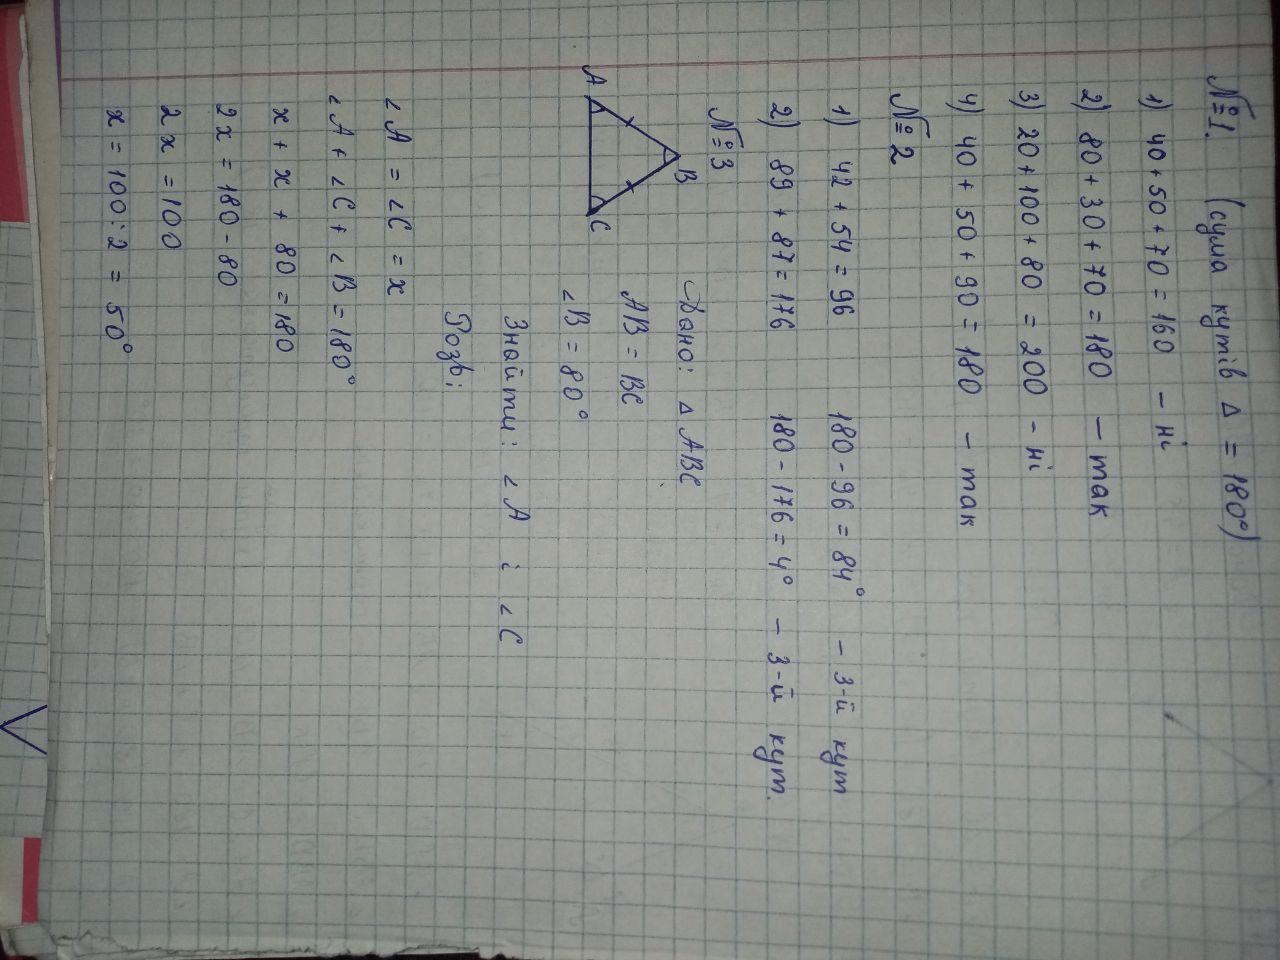 №1. (сума кутів Δ = 180°)
1) 40 + 50 + 70 = 160 - ні
2) 80 + 30 + 70 = 180 - так
3) 20 + 100 + 80 = 200 - ні
4) 40 + 50 + 90 = 180 - так
№2
1) 42 + 54 = 96 180 - 96 = 84° - 3-й кут
2) 89 + 87 = 176 180 - 176 = 4° - 3-й кут.
№3
A B C
Дано: Δ ABC
AB = BC
∠B = 80°
Знайти: ∠A і ∠C
Розв:
∠A = ∠C = x
∠A + ∠C + ∠B = 180°
x + x + 80 = 180
2x = 180 - 80
2x = 100
x = 100 : 2 = 50°